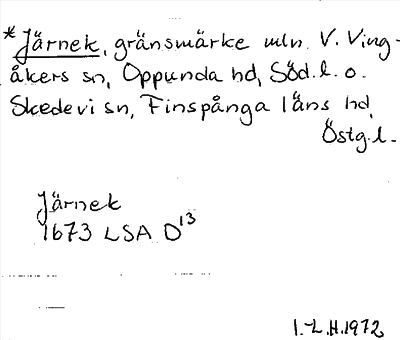 *Järnek, gränsmärke mln. V. Ving-
åkers sn, Oppunda hd, Söd.l. o.
Skedevi sn, Finspånga läns hd,
Östg.l.
Järnek
1673 LSA D¹³
I.L.H.1972